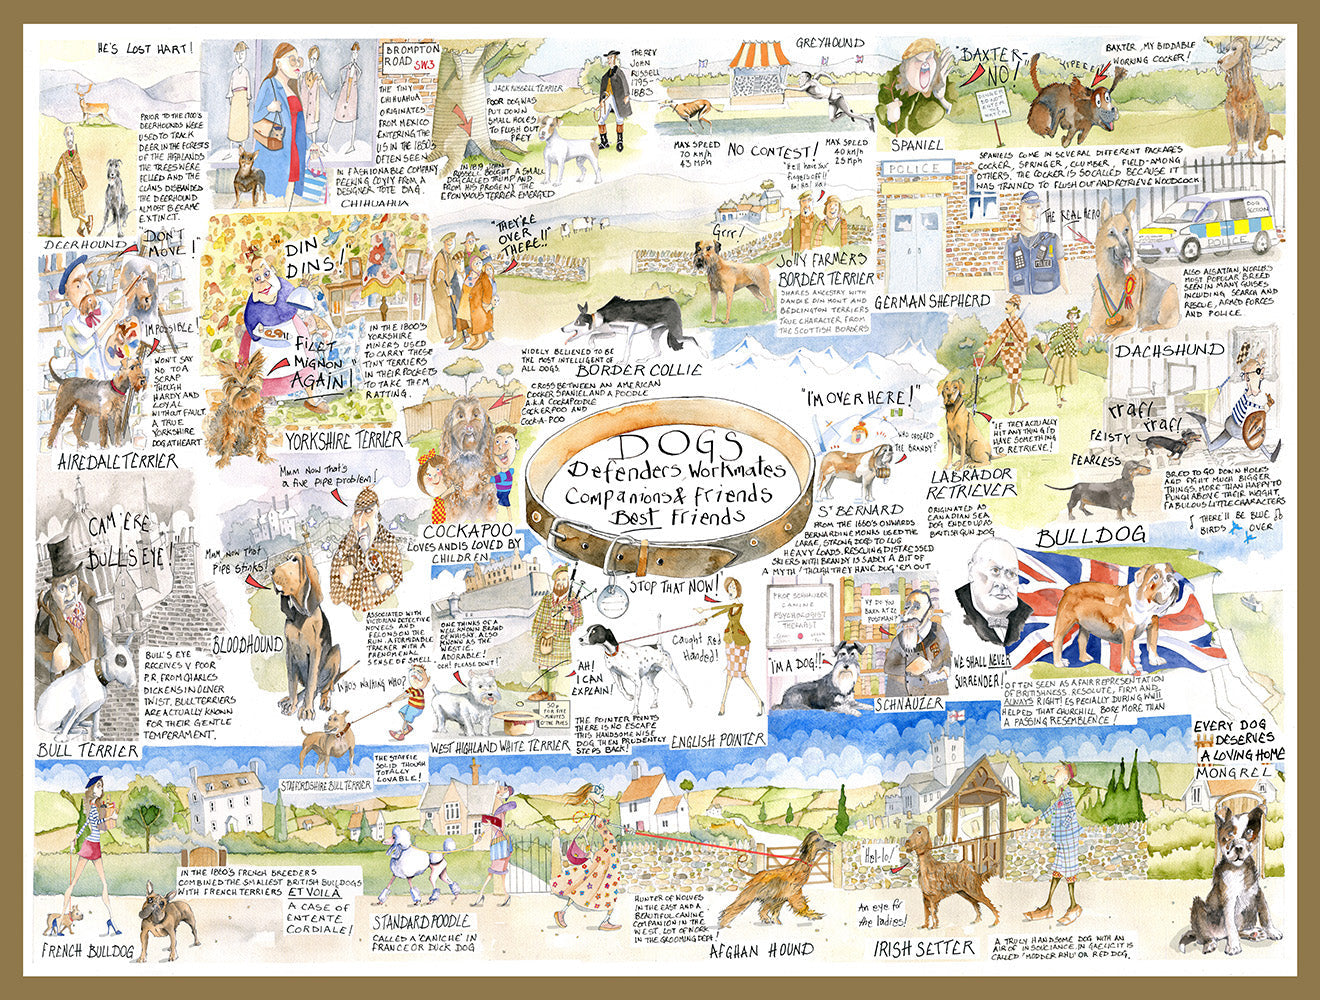 HE'S LOST HART!
PRIOR TO THE 1700'S
DEERHOUNDS WERE
USED TO TRACK
DEER IN THE FORESTS
OF THE HIGHLANDS
THE TREES WERE
FELLED AND THE
CLANS DISBANDED
THE DEERHOUND
ALMOST BECAME
EXTINCT.
DEERHOUND
BROMPTON
ROAD SW3
THE TINY
CHIHUAHUA
ORIGINATES
FROM MEXICO
ENTERING THE
US IN THE 1850'S
OFTEN SEEN
IN FASHIONABLE COMPANY
PEEKING COYLY FROM A
DESIGNER TOTE BAG.
CHIHUAHUA
JACK RUSSELL TERRIER
POOR DOG WAS
PUT DOWN
SMALL HOLES
TO FLUSH OUT
PREY
THE REV
JOHN
RUSSELL
1795-
1883
IN 1819 JOHN
RUSSELL BOUGHT A SMALL
DOG CALLED TRUMP AND
FROM HIS PROGENY THE
EPONYMOUS TERRIER EMERGED
GREYHOUND
MAX SPEED
70 KM/h
43 MPH
NO CONTEST!
MAX SPEED
40 KM/h
25 MPH
"BAXTER-
NO!"
YIPEEE
BAXTER, MY BIDDABLE
WORKING COCKER!
SPANIEL
SPANIELS COME IN SEVERAL DIFFERENT PACKAGES
COCKER, SPRINGER, CLUMBER, FIELD-AMONG
OTHERS. THE COCKER IS SO CALLED BECAUSE IT
WAS TRAINED TO FLUSH OUT AND RETRIEVE WOODCOCK
"DON'T
MOVE!"
"IMPOSSIBLE!"
WON'T SAY
NO TO A
SCRAP
THOUGH
HARDY AND
LOYAL
WITHOUT FAULT.
A TRUE
YORKSHIRE
DOG AT HEART
AIREDALE TERRIER
"DIN
DINS!"
"FILET
MIGNON
AGAIN!"
IN THE 1800'S
YORKSHIRE
MINERS USED
TO CARRY THESE
TINY TERRIERS
IN THEIR POCKETS
TO TAKE THEM
RATTING.
YORKSHIRE TERRIER
"THEY'RE
OVER
THERE!!"
WIDELY BELIEVED TO BE
THE MOST INTELLIGENT OF
ALL DOGS.
BORDER COLLIE
Grrr!
Ha! Ha! Ha!
JOLLY FARMERS
BORDER TERRIER
SHARES ANCESTRY WITH
DANDIE DINMONT AND
BEDLINGTON TERRIERS
TRUE CHARACTER FROM
THE SCOTTISH BORDERS
POLICE
THE REAL HERO
DOG
SECTION
POLICE
GERMAN SHEPHERD
ALSO ALSATIAN, WORLD'S
MOST POPULAR BREED
SEEN IN MANY GUISES
INCLUDING SEARCH AND
RESCUE, ARMED FORCES
AND POLICE.
CROSS BETWEEN AN AMERICAN
COCKER SPANIEL AND A POODLE
A.K.A COCKAPOODLE
COCKERPOO AND
COCK-A-POO
COCKAPOO
LOVES AND IS LOVED BY
CHILDREN
DOGS
Defenders, Workmates
Companions & Friends
Best Friends
"I'M OVER HERE!"
"WHO ORDERED
THE BRANDY?"
ST BERNARD
FROM THE 1660'S ONWARDS
BERNARDINE MONKS USED THE
LARGE, STRONG DOGS TO LUG
HEAVY LOADS. RESCUING DISTRESSED
SKIERS WITH BRANDY IS SADLY A BIT OF
A MYTH! THOUGH THEY HAVE DUG 'EM OUT
"IF THEY ACTUALLY
HIT ANYTHING I'D
HAVE SOMETHING
TO RETRIEVE!
LABRADOR
RETRIEVER
ORIGINATED AS
CANADIAN SEA
DOG ENDED UP AS
BRITISH GUN DOG
DACHSHUND
rraf!
rraf!
FEISTY
FEARLESS
BRED TO GO DOWN HOLES
AND FIGHT MUCH BIGGER
THINGS, MORE THAN HAPPY TO
PUNCH ABOVE THEIR WEIGHT,
FABULOUS LITTLE CHARACTERS
THERE'LL BE BLUE
BIRDS OVER
"CAM'ERE
BULLS EYE!"
BULL'S EYE
RECEIVES V POOR
P.R. FROM CHARLES
DICKENS IN OLIVER
TWIST, BULL TERRIERS
ARE ACTUALLY KNOWN
FOR THEIR GENTLE
TEMPERAMENT.
BULL TERRIER
Mmm Now that's
a five pipe problem!
Mmm Now that
Pipe stinks!
BLOODHOUND
ASSOCIATED WITH
VICTORIAN DETECTIVE
NOVELS AND
FELONS ON THE
RUN. A FORMIDABLE
TRACKER WITH A
PHENOMENAL
SENSE OF SMELL.
WHO'S WALKING WHO?
THE STAFFIE
SOLID THOUGH
TOTALLY
LOVABLE!
STAFFORDSHIRE BULL TERRIER
ONE THINKS OF A
WELL KNOWN BRAND
OF WHISKY. ALSO
KNOWN AS THE
WESTIE.
ADORABLE!
OCH! PLEASE DON'T!
50P
FOR FIVE
MINUTES
WEST HIGHLAND WHITE TERRIER
"STOP THAT NOW!"
AH!
I CAN
EXPLAIN!
Caught Red
Handed!
THE POINTER POINTS
THERE IS NO ESCAPE
THIS HANDSOME WISE
DOG THEN PRUDENTLY
STEPS BACK!
ENGLISH POINTER
PROF SCHNAUZER
CANINE
PSYCHOLOGIST
THERAPIST
VY DO YOU
BARK AT ZE
POSTMAN?
"I'M A DOG!!"
SCHNAUZER
BULLDOG
WE SHALL NEVER
SURRENDER!
OFTEN SEEN AS A FAIR REPRESENTATION
OF BRITISHNESS. RESOLUTE, FIRM AND
ALWAYS RIGHT! ESPECIALLY DURING WWII
HELPED THAT CHURCHILL BORE MORE THAN
A PASSING RESEMBLENCE!
EVERY DOG
DESERVES
A LOVING HOME
MONGREL
IN THE 1860'S FRENCH BREEDERS
COMBINED THE SMALLEST BRITISH BULLDOGS
WITH FRENCH TERRIERS ET VOILA
A CASE OF
ENTENTE
CORDIALE!
FRENCH BULLDOG
STANDARD POODLE
CALLED A 'CANICHE' IN
FRANCE OR DUCK DOG
HUNTER OF WOLVES
IN THE EAST AND A
BEAUTIFUL CANINE
COMPANION IN THE
WEST. LOT OF WORK
IN THE GROOMING DEPT!
AFGHAN HOUND
"Hel-lo!
An eye for
the ladies!
IRISH SETTER
A TRULY HANDSOME DOG WITH AN
AIR OF INSOUCIANCE. IN GAELIC IT IS
CALLED 'MODDER RHU' OR RED DOG.